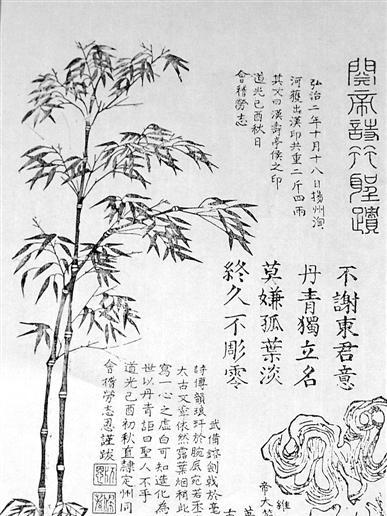 關帝詩竹聖蹟
弘治二年十月十八日揚州淘
河獲出漢印共重二斤四兩
其文曰漢壽亭侯之印
道光己酉秋日
會稽勞志
不謝東君意
丹青獨立名
莫嫌孤葉淡
終久不彫零
武備
詩傳韻琅玕於腕底宛若
太古文章依然露葉煙梢此
寫一心之虛白可知造化為
世以丹青詎曰聖人不手
道光己酉初秋直隸定州同
會稽勞志忍謹跋
維
帝大